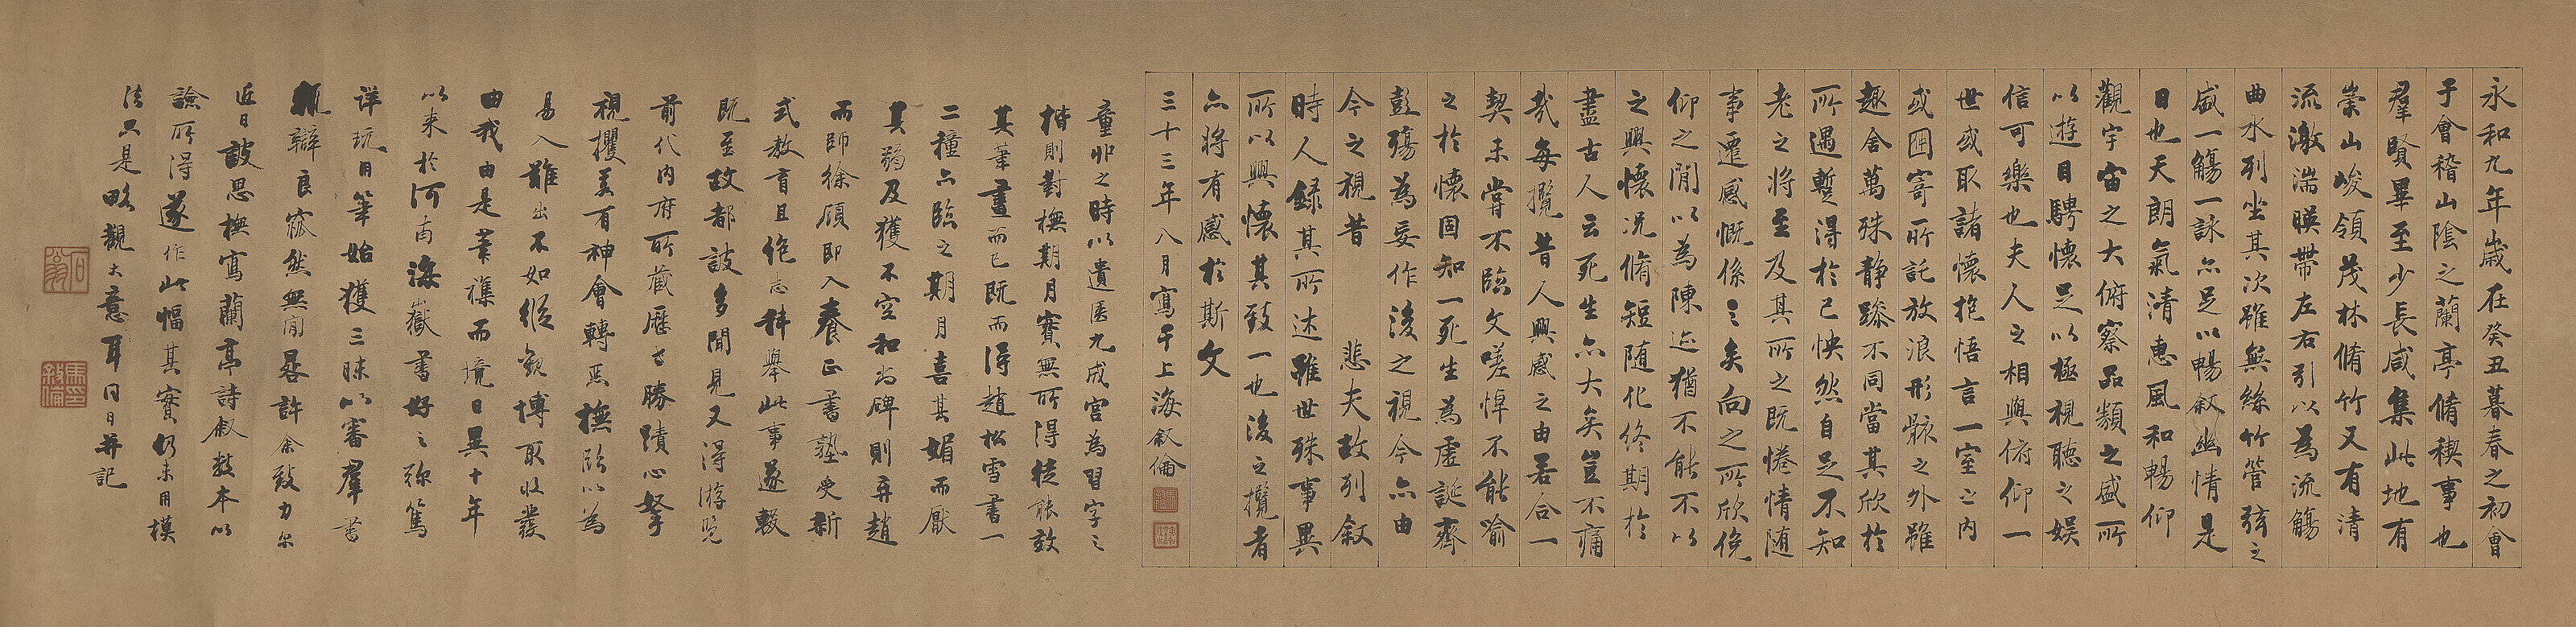 永和九年歲在癸丑暮春之初會
于會稽山陰之蘭亭脩稧事也
羣賢畢至少長咸集此地有
崇山峻領茂林脩竹又有清
流激湍暎帶左右引以為流觴
曲水列坐其次雖無絲竹管弦之
盛一觴一詠亦足以暢敘幽情是
日也天朗氣清惠風和暢仰
觀宇宙之大俯察品類之盛所
以遊目騁懷足以極視聽之娛
信可樂也夫人之相與俯仰一
世或取諸懷抱悟言一室之內
或因寄所託放浪形骸之外雖
趣舍萬殊靜躁不同當其欣於
所遇暫得於己怏然自足不知
老之將至及其所之既惓情隨
事遷感慨係之矣向之所欣俛
仰之閒以為陳迹猶不能不以
之興懷況脩短隨化終期於
盡古人云死生亦大矣豈不痛
哉每攬昔人興感之由若合一
契未嘗不臨文嗟悼不能喻
之於懷固知一死生為虛誕齊
彭殤為妄作後之視今亦由
今之視昔 悲夫故列敘
時人錄其所述雖世殊事異
所以興懷其致一也後之攬者
亦將有感於斯文
三十三年八月寫于上海敘倫
童丱之時以遺匿九成宮為習字之
楷則對橅期月實無所得徒能效
其筆畫而已既而得趙松雪書一
二種亦臨之期月喜其媚而厭
其弱及獲不空和尚碑則弃趙
而師徐頎即入養正書塾更新
式教育且絕科舉此事遂輟
既至故都詖多聞見又得游覽
前代內府所藏歷古勝蹟心摹
視攫美有神會轉惡橅臨以為
易入難出不如縱觀博取收發
由我由是筆襍而境日異十年
以來於河南海嶽書好之弥篤
詳玩用筆始獲三昧以審羣書
甄辯良窳然無閒晷許余致力尔
近日詖思橅寫蘭亭詩敘數本以
譣所得遂作此幅其實仍未用模
法只是略觀大意耳同日并記
石翁
馬敘倫印